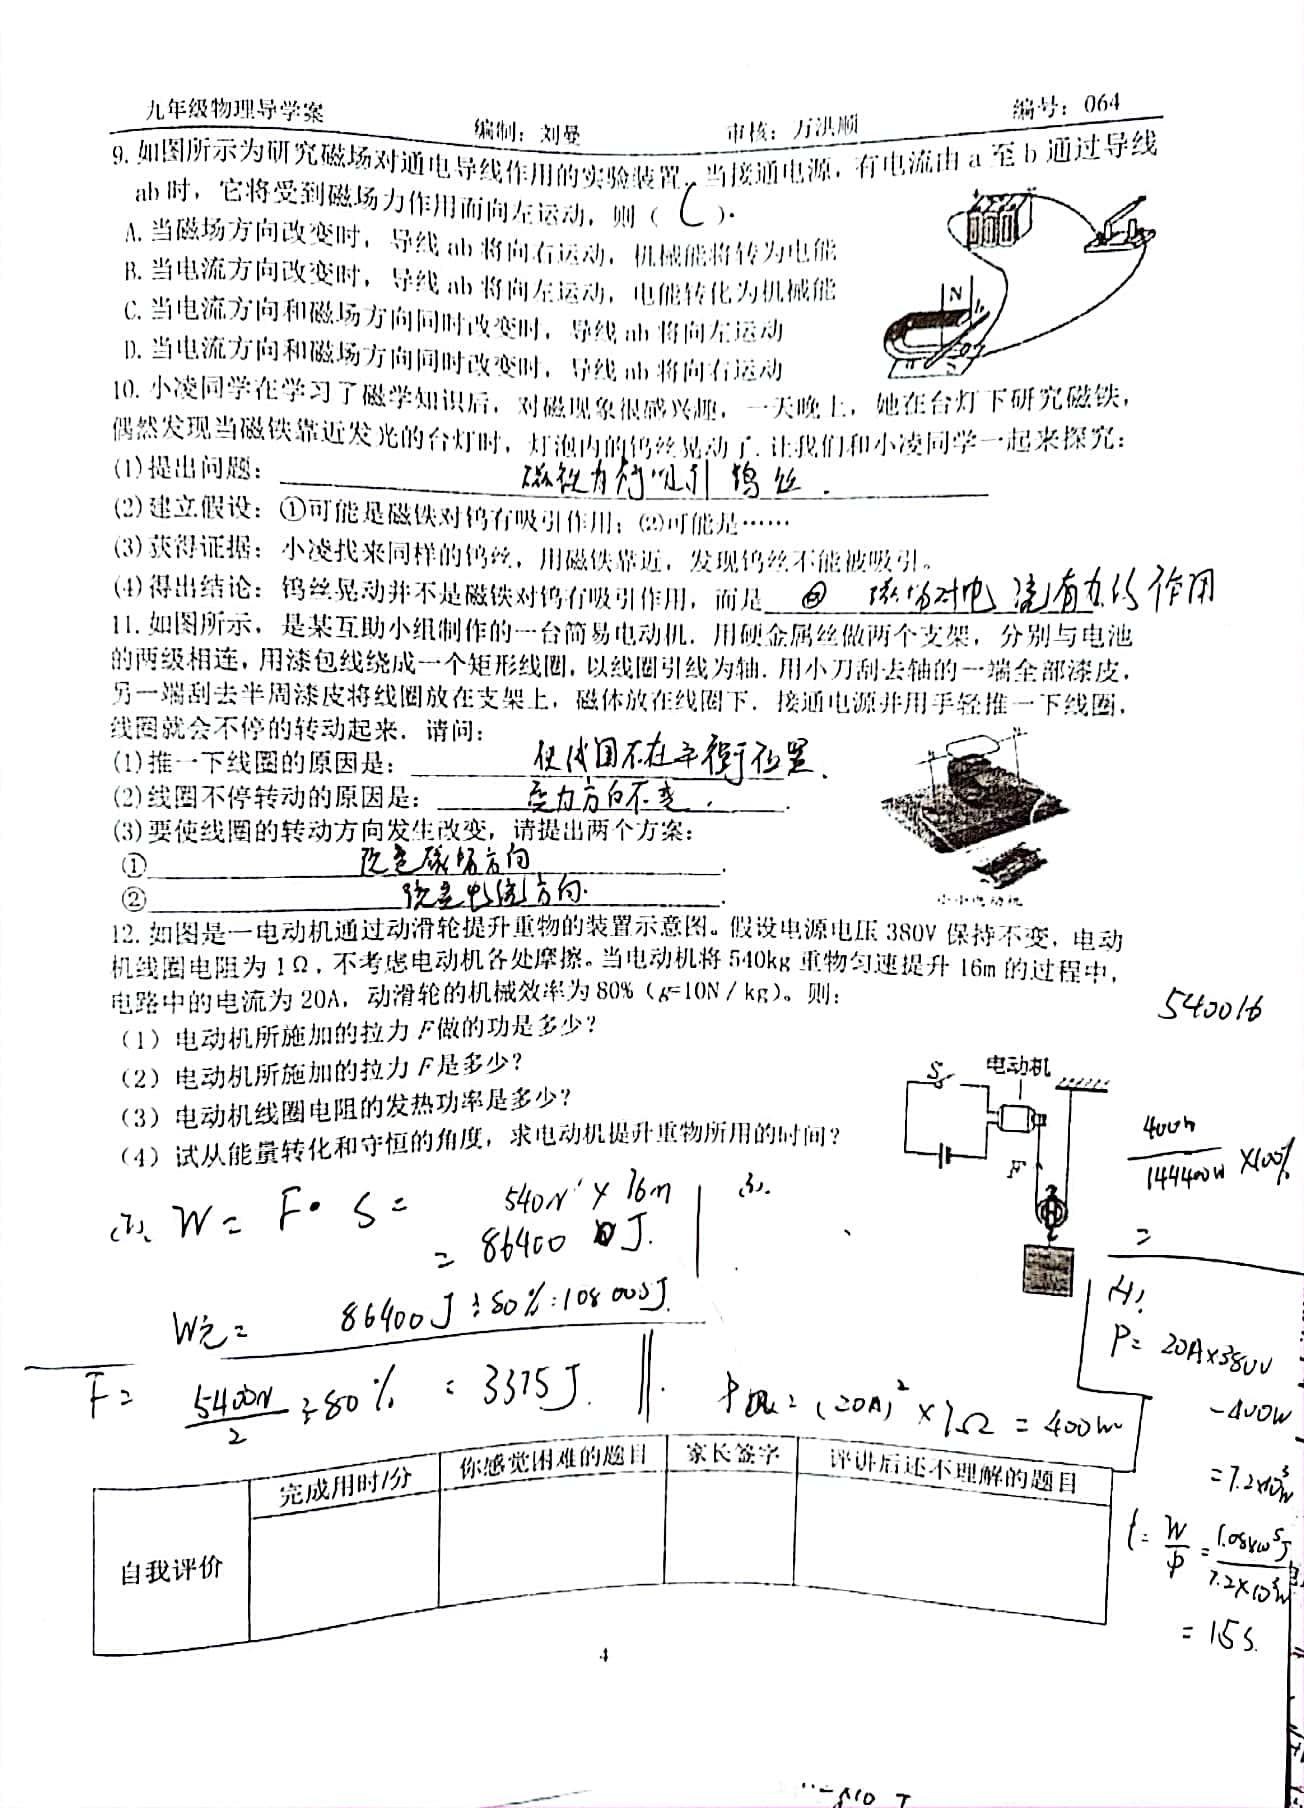 九年级物理导学案 编制：刘曼 审核：万洪顺 编号：064
9.如图所示为研究磁场对通电导线作用的实验装置，当接通电源，有电流由a至b通过导线
ab时，它将受到磁场力作用而向左运动，则（ C ）.
A.当磁场方向改变时，导线ab将向右运动，机械能将转为电能
B.当电流方向改变时，导线ab将向左运动，电能转化为机械能
C.当电流方向和磁场方向同时改变时，导线ab将向左运动
D.当电流方向和磁场方向同时改变时，导线ab将向右运动
N
S
10.小凌同学在学习了磁学知识后，对磁现象很感兴趣，一天晚上，她在台灯下研究磁铁，
偶然发现当磁铁靠近发光的台灯时，灯泡内的钨丝晃动了.让我们和小凌同学一起来探究：
(1)提出问题： 磁铁为何吸引钨丝.
(2)建立假设：①可能是磁铁对钨有吸引作用；②可能是……
(3)获得证据：小凌找来同样的钨丝，用磁铁靠近，发现钨丝不能被吸引。
(4)得出结论：钨丝晃动并不是磁铁对钨有吸引作用，而是 磁场对电流有力的作用
11.如图所示，是某互助小组制作的一台简易电动机.用硬金属丝做两个支架，分别与电池
的两级相连，用漆包线绕成一个矩形线圈，以线圈引线为轴.用小刀刮去轴的一端全部漆皮，
另一端刮去半周漆皮将线圈放在支架上，磁体放在线圈下.接通电源并用手轻推一下线圈，
线圈就会不停的转动起来.请问：
(1)推一下线圈的原因是： 使线圈不在平衡位置.
(2)线圈不停转动的原因是： 受力方向不变.
(3)要使线圈的转动方向发生改变，请提出两个方案：
① 改变磁场方向.
② 改变电流方向.
小小电动机
12.如图是一电动机通过动滑轮提升重物的装置示意图。假设电源电压380V保持不变，电动
机线圈电阻为1Ω，不考虑电动机各处摩擦。当电动机将540kg重物匀速提升16m的过程中，
电路中的电流为20A，动滑轮的机械效率为80%（g=10N/kg）。则：
（1）电动机所施加的拉力F做的功是多少？
（2）电动机所施加的拉力F是多少？
（3）电动机线圈电阻的发热功率是多少？
（4）试从能量转化和守恒的角度，求电动机提升重物所用的时间？
S 电动机
F
540016
400w
144400w ×100%
=
W= F·S= 540N×16m
= 86400 J.
W总= 86400J÷80%=108000J.
F= 5400N/2 ÷80% = 3375J.
(3).
=(20A)²×1Ω = 400w
P= 20A×380V
-400W
=7.2×10³W
t= W/P = 1.08×10⁵J/7.2×10³W
= 15s.
自我评价 完成用时/分 你感觉困难的题目 家长签字 评讲后还不理解的题目
4